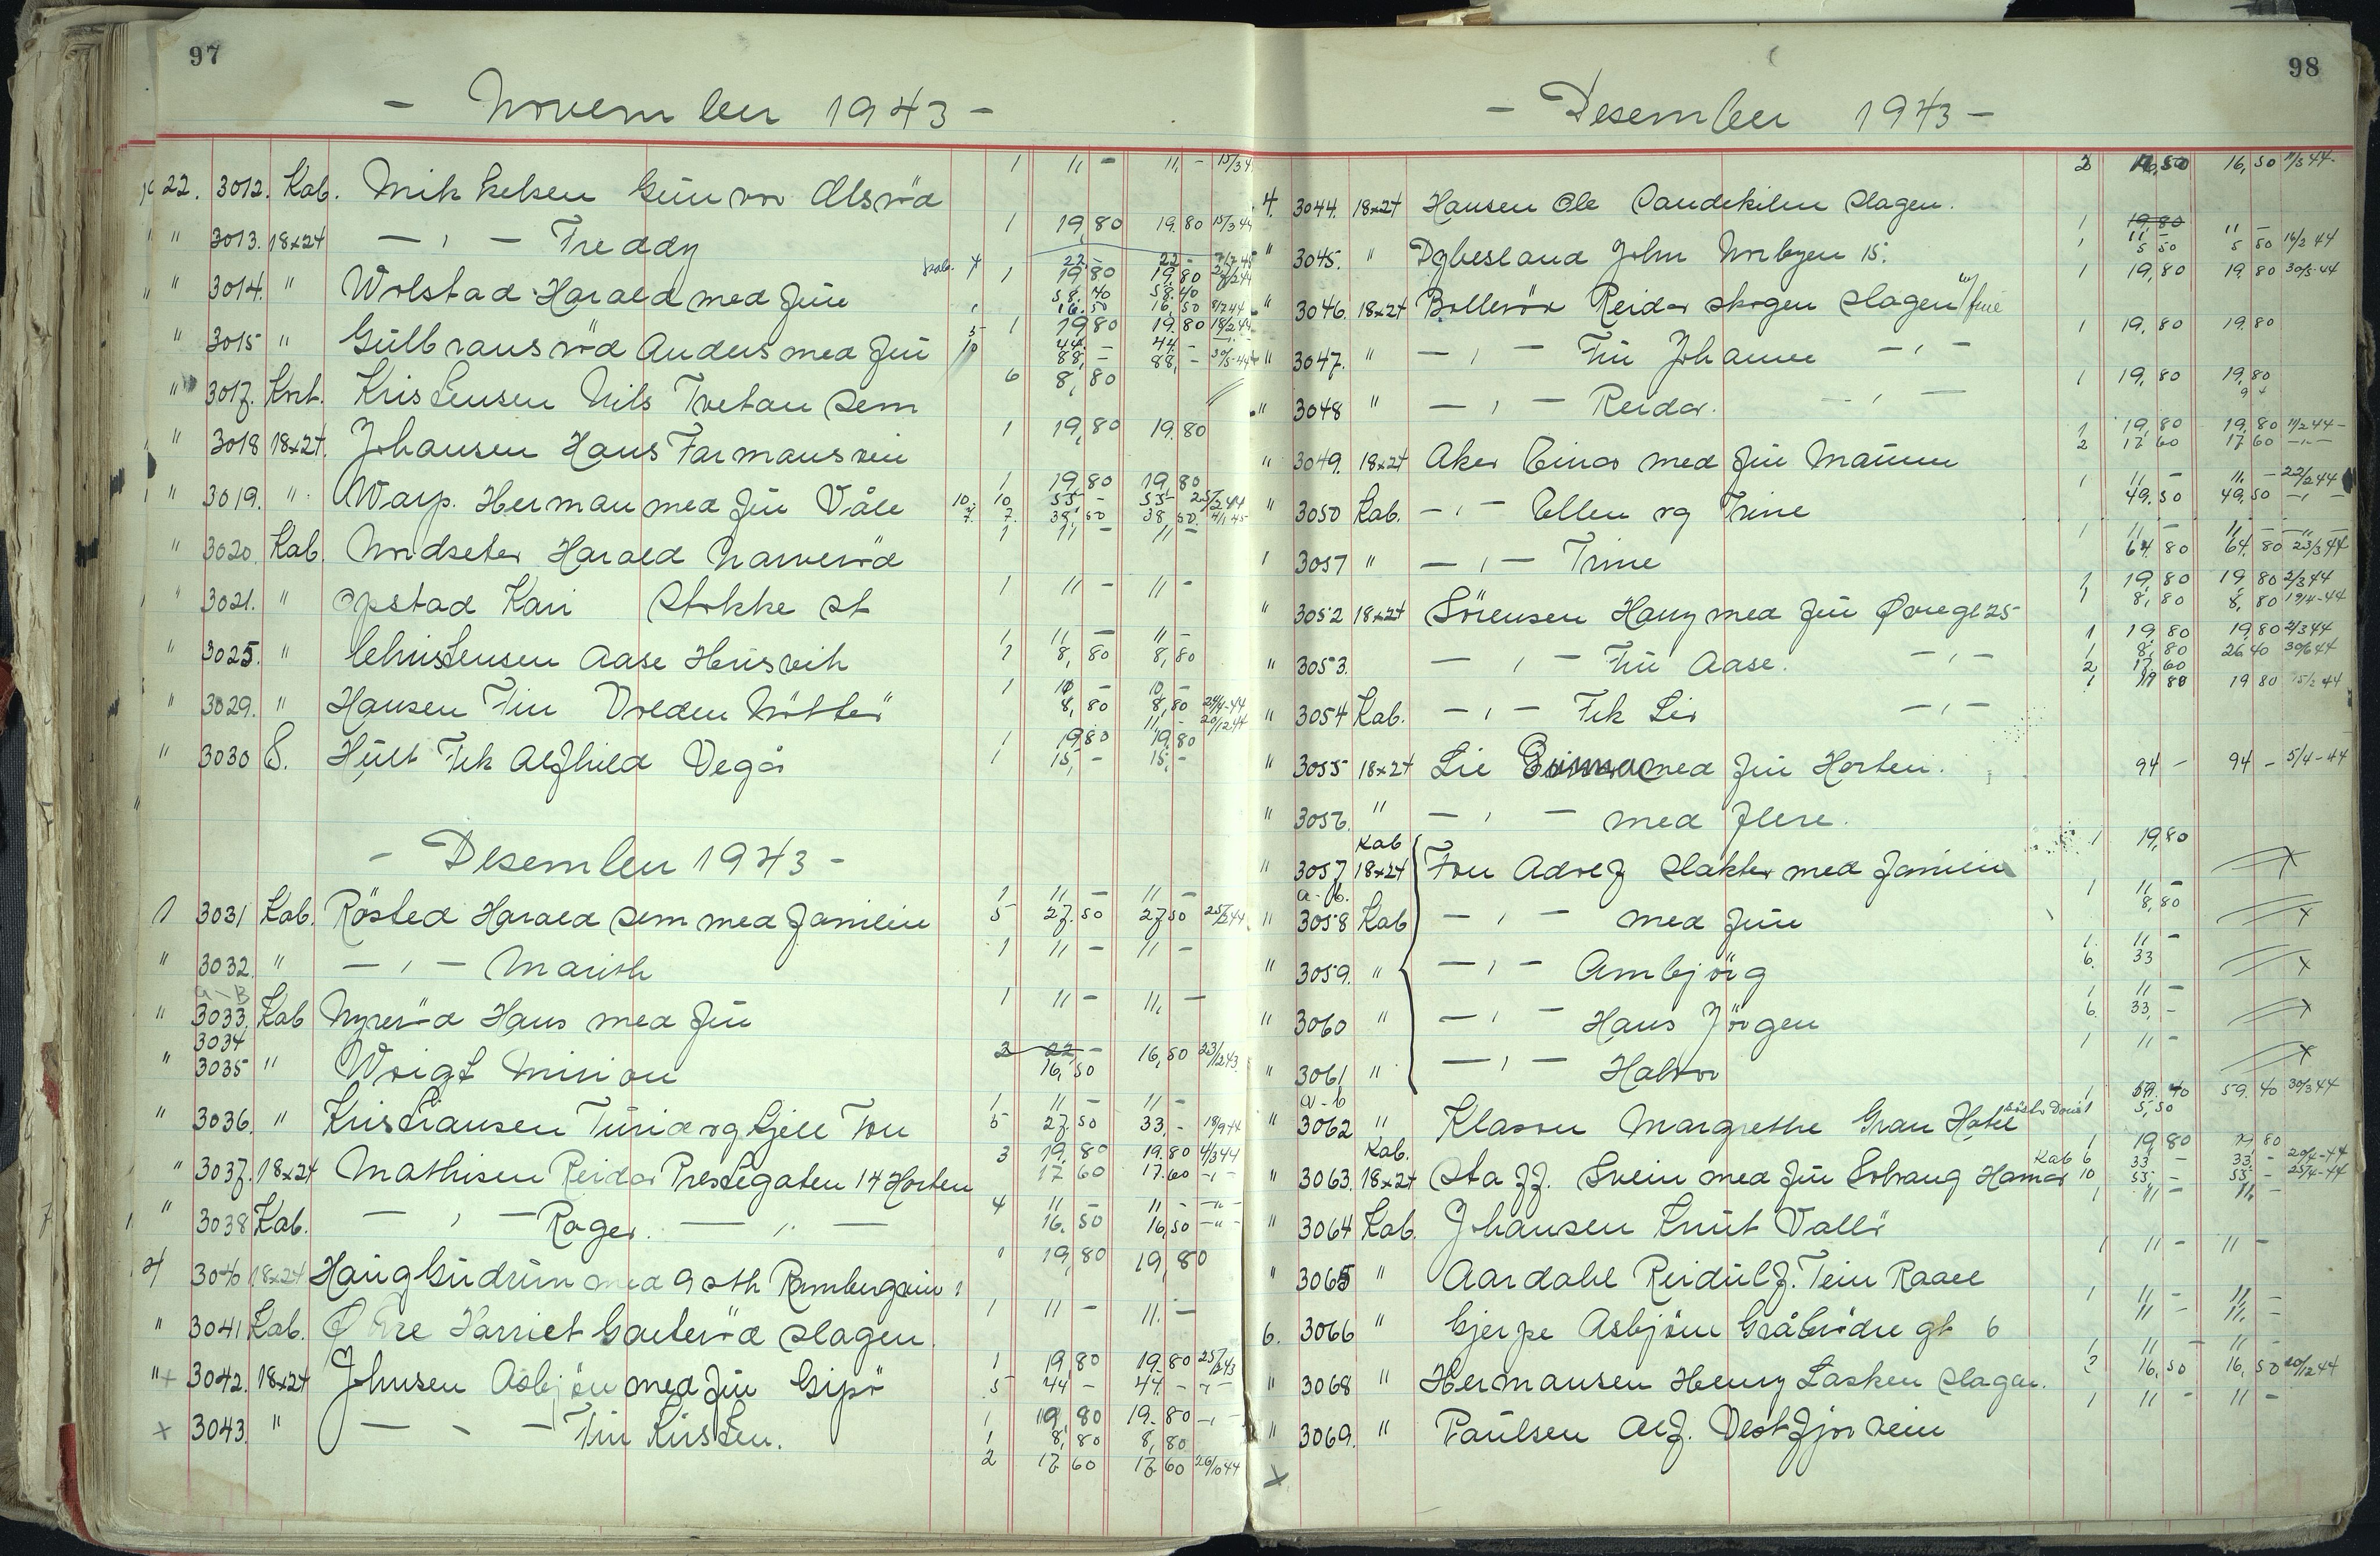 97
- November 1943 -
1 11 - 11 - 15/3 4
22. 3012. Kab. Mikkelsen Gunvor Olsrød
1 19,80 19.80 15/3 44
" 3013. 18x24 - " - Freddy
Kab. 4 22.- 22.-
1 19,80 19,80
" 3014. " Wolstad Harald med frue
58.40 58.40
1 16.50 16,50
" 3015 " Gulbransrød Anders med fru
1 19.80 19.80 18/2 44
5 44. - 44 -
10 88, - 88, - 30/5-44
" 3017. Kort. Kristensen Nils Tvetan Sem
6 8,80
" 3018 18x24. Johansen Hans Farmansvei
1 19,80 19.80
" 3019. " Warp. Herman med fru Våle
1 19,80 19,80
10. 10 55 - 55 - 25/2 44
7. 7. 38,50 38,50. 4/1 45
" 3020. Kab. Nordseter Harald Narverød
1 11 - 11 -
" 3021. " Opstad Kari Stokke st
1 11 - 11 -
" 3025. " Christensen Aase Husvik
1 11 - 11 -
1 8,80 8,80
" 3029. " Hansen Fru Vreden Nøtterö
1 10 - 10 -
8,80 8,80 24/4-44
11, - 20/12 44
" 3030 8. Hult Frk Alfhild Vegår
1 19,80 19,80
1 15, - 15, -
- Desember 1943 -
1 3031 Kab. Røsted Harald Sem med familie
1 11 - 11 -
5 27.50 27.50 25/2 44
" 3032. " - " - Marith
1 11 - 11 -
a - B
" 3033. Kab Nyrerød Hans med fru
1 11 - 11, -
3034
" 3035 " Woigt Mirion
2 22, - 16,50 23/12 43.
16,50
" 3036. " Kristiansen Turid og Kjell Ton
1 11 - 11 -
5 27.50 33, - 18/9 44
" 3037. 18x24 Mathisen Reidar Prestegaten 14 Horten
3 19,80 19.80 4/3 44
17 60 17.60 - " -
" 3038 Kab. - " - Roger. - " -
4 11 - 11 - - " -
16.50 16,50 - " -
4 3040 18x24 Haug Gudrun med 9 sth Rambergvein 1
1 19,80 19,80
" 3041 Kab. Øhre Harriet Gauterød Slagen.
1 11 - 11. -
" + 3042. 18x24 Johnsen Asbjørn med fru Gipø
1 19,80 19.80 25/2 43
5 44 - 44. - " -
x 3043. " - " - Fru Kirsten.
1 19,80 19.80 - " -
1 8,80 8,80
2 17.60 17.60 26/10 44
98
- Desember 1943 -
3 16,50 16,50 11/3 44-
4. 3044. 18x24 Hansen Ole Sandekilen Slagen.
1 19,80
1 11 - 11 -
5 50 5 50 16/2 44
" 3045. " Dybesland John Norbyen 15.
1 19,80 19 80 30/3-44
" 3046. 18x24 Bollerød Reidar Skogen Slagen m/ frue
1 19,80 19.80
" 3047. " - " - Fru Johanne - " -
1 19,80 19,80
" 3048 " - " - Reidar. - " -
1 19,80 19,80 11/2 44-
2 17 60 17 60 - " -
" 3049. 18x24 Aker Einar med fru Maüren
1 11 - 11, - 22/2 44
49.50 49,50 - " -
" 3050 Kab. - " - Ellen og Trine
1 11 - 11, - - " -
64.80 64,80 23/3 44
1 3057 " - " - Trine
1 19,80 19,80 2/3 44
1 8,80 8,80 19/4-44
" 3052 18x24 Sörensen Harry med fru Øvregt 25
1 19,80 19,80 2/3 44
1 8,80 26 40 30/6 44
2 17.60
" 3053. - " - Fru Aase. - " -
1 19 80 19 80 15/2 44
" 3054 Kab. - " - Frk Liv - " -
" 3055 18x24 Lie Einar med fru Horten.
94 - 94 - 5/4-44
" 3056. " - " - med flere.
Kab
" 3057 18x24 Fon Adolf Slakter med familie
1 19,80 x
a - b.
" 3058 Kab - " - med frue
1 11 -
8,80 x
" 3059. " - " - Ambjörg
1. 11 -
6. 33 x
" 3060 " - " - Hans Jörgen
1 11 -
6. 33, - x
" 3061 " - " - Halvor
1 11 - x
a - b
" 3062 " Klasson Margrethe Gran Hotel
1 59.40 59.40 30/3 44
1 5,50
Kab.
" 3063. 18x24 Staff. Svein med fru Solvang Hamar
1 19,80 19,80
Kab 6 33 - 33, - 20/2-44
10 55, - 55 - 25/4-44
" 3064 Kab. Johansen Knut Vallö
1 11 - 11, -
" 3065 " Aardahl Reidulf. Tein Raael
1 11 - 11 -
6. 3066 " Gjerpe Asbjörn Gråbrödre gt 6
1 11 - 11, -
11 - 11, -
" 3068 " Hermansen Henry Lasken Slagen.
1 11 - 11 -
3 16,50 16,50 20/12 44
" 3069. " Paulsen Alf. Vestfjor vein
1 11 - 11 -
x